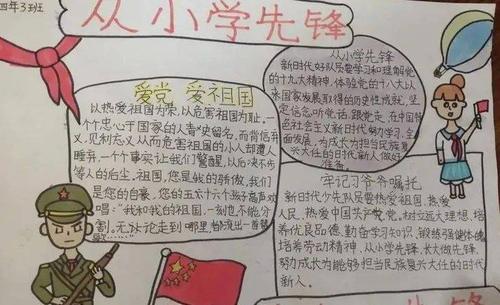 四年3班
从小学先锋
爱党 爱祖国
以热爱祖国为荣,以危害祖国为耻,一
个忠心于国家的人青史留名,而背信弃
义,见利忘义从而危害祖国的小人却遭人
唾弃,一个个事实让我们警醒,以后决不步
等人的后尘。祖国,您是我的骄傲,我们
是您的自豪,您的五十六个孩子高声欢
唱:"我和我的祖国,一刻也不能分
割。无论走到哪里都流出一首赞
从小学先锋
新时代好队员要学习和理解党
的十九大精神,体验党的十八大以
来国家发展取得的历史性成就,坚
定信念,听党话,跟党走,在中国特
色社会主义新时代努力学习,全
面发展,为成长为担当民族复
兴大任的时代新人做好
准备。
牢记习爷爷嘱托
新时代少先队员要热爱祖国,热爱
人民,热爱中国共产党,树立远大理想,培
养优良品德,勤奋学习知识,锻炼强健体魄,
培养劳动精神,从小学先锋,长大做先锋,
努力成长为能够担当民族复兴大任的时代
新人。